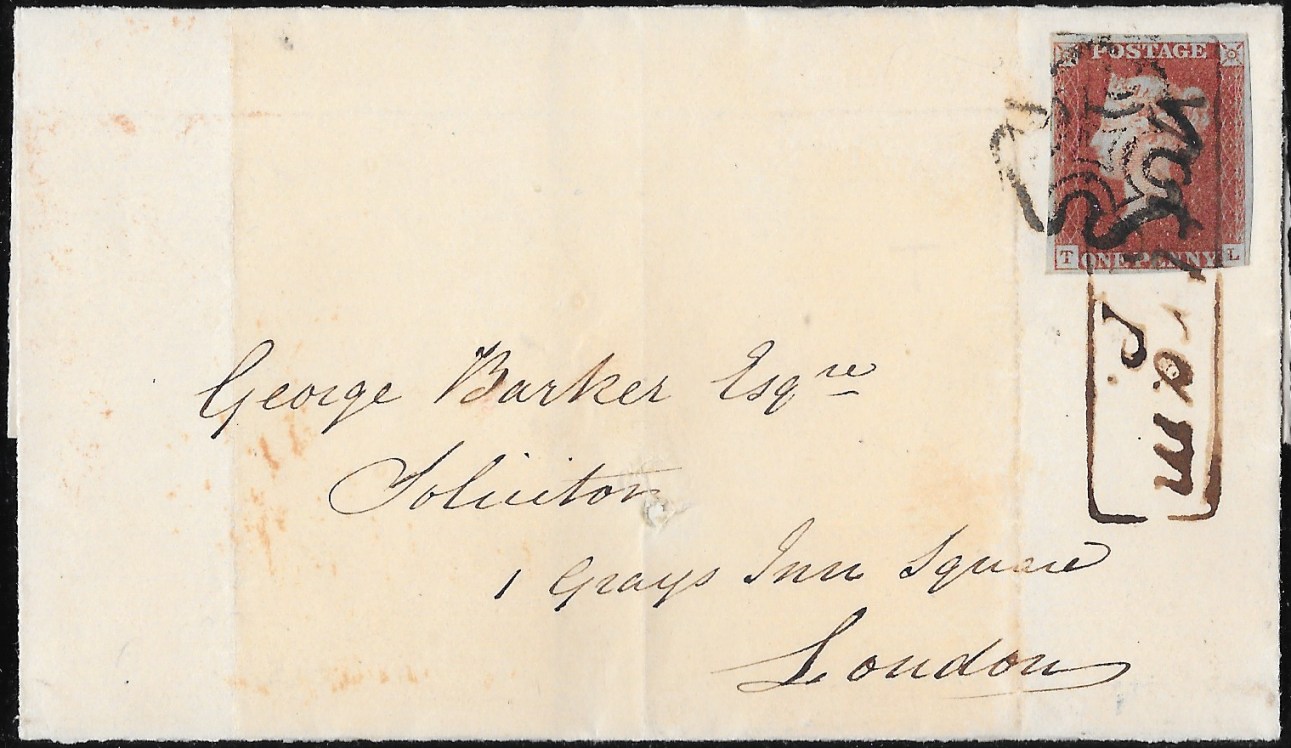 POSTAGE
T ONE PENNY L
George Barker Esqre
Solicitor
1 Grays Inn Square
London